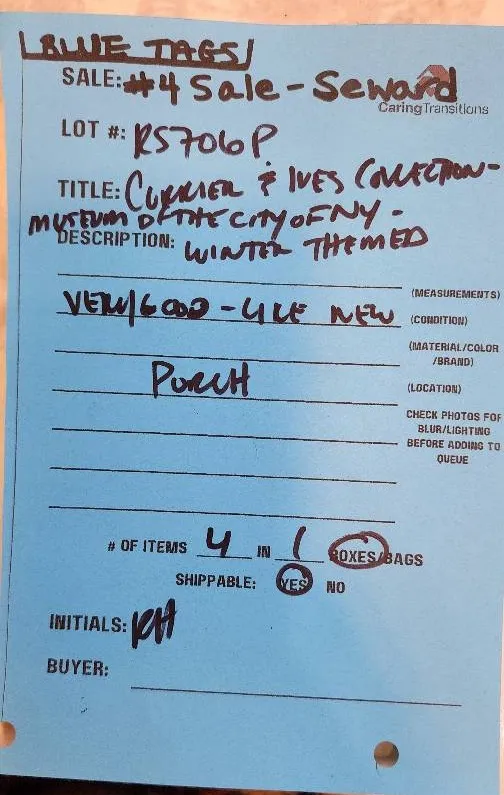 BLUE TAGS
SALE: #4 Sale - Seward
CaringTransitions
LOT #: RS706P
TITLE: CURRIER & IVES COLLECTION -
MUSEUM OF THE CITY OF NY -
DESCRIPTION: WINTER THEMED
(MEASUREMENTS)
VERY GOOD - LIKE NEW (CONDITION)
(MATERIAL/COLOR
/BRAND)
PORCH (LOCATION)
CHECK PHOTOS FOR
BLUR/LIGHTING
BEFORE ADDING TO
QUEUE
# OF ITEMS 4 IN 1 BOXES/BAGS
SHIPPABLE: YES NO
INITIALS: RH
BUYER: